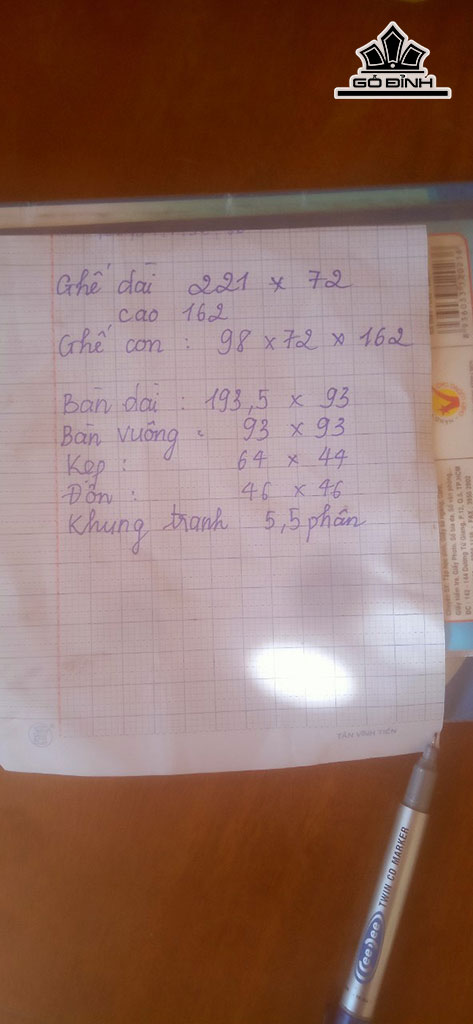 GỖ ĐỈNH
Ghế dài 221 x 72
cao 162
Ghế con : 98 x 72 x 162
Bàn dài : 193,5 x 93
Bàn vuông : 93 x 93
Kẹp : 64 x 44
Đôn : 46 x 46
Khung tranh 5,5 phân
TÂN VĨNH TIẾN
CeeDee TWIN CD MARKER